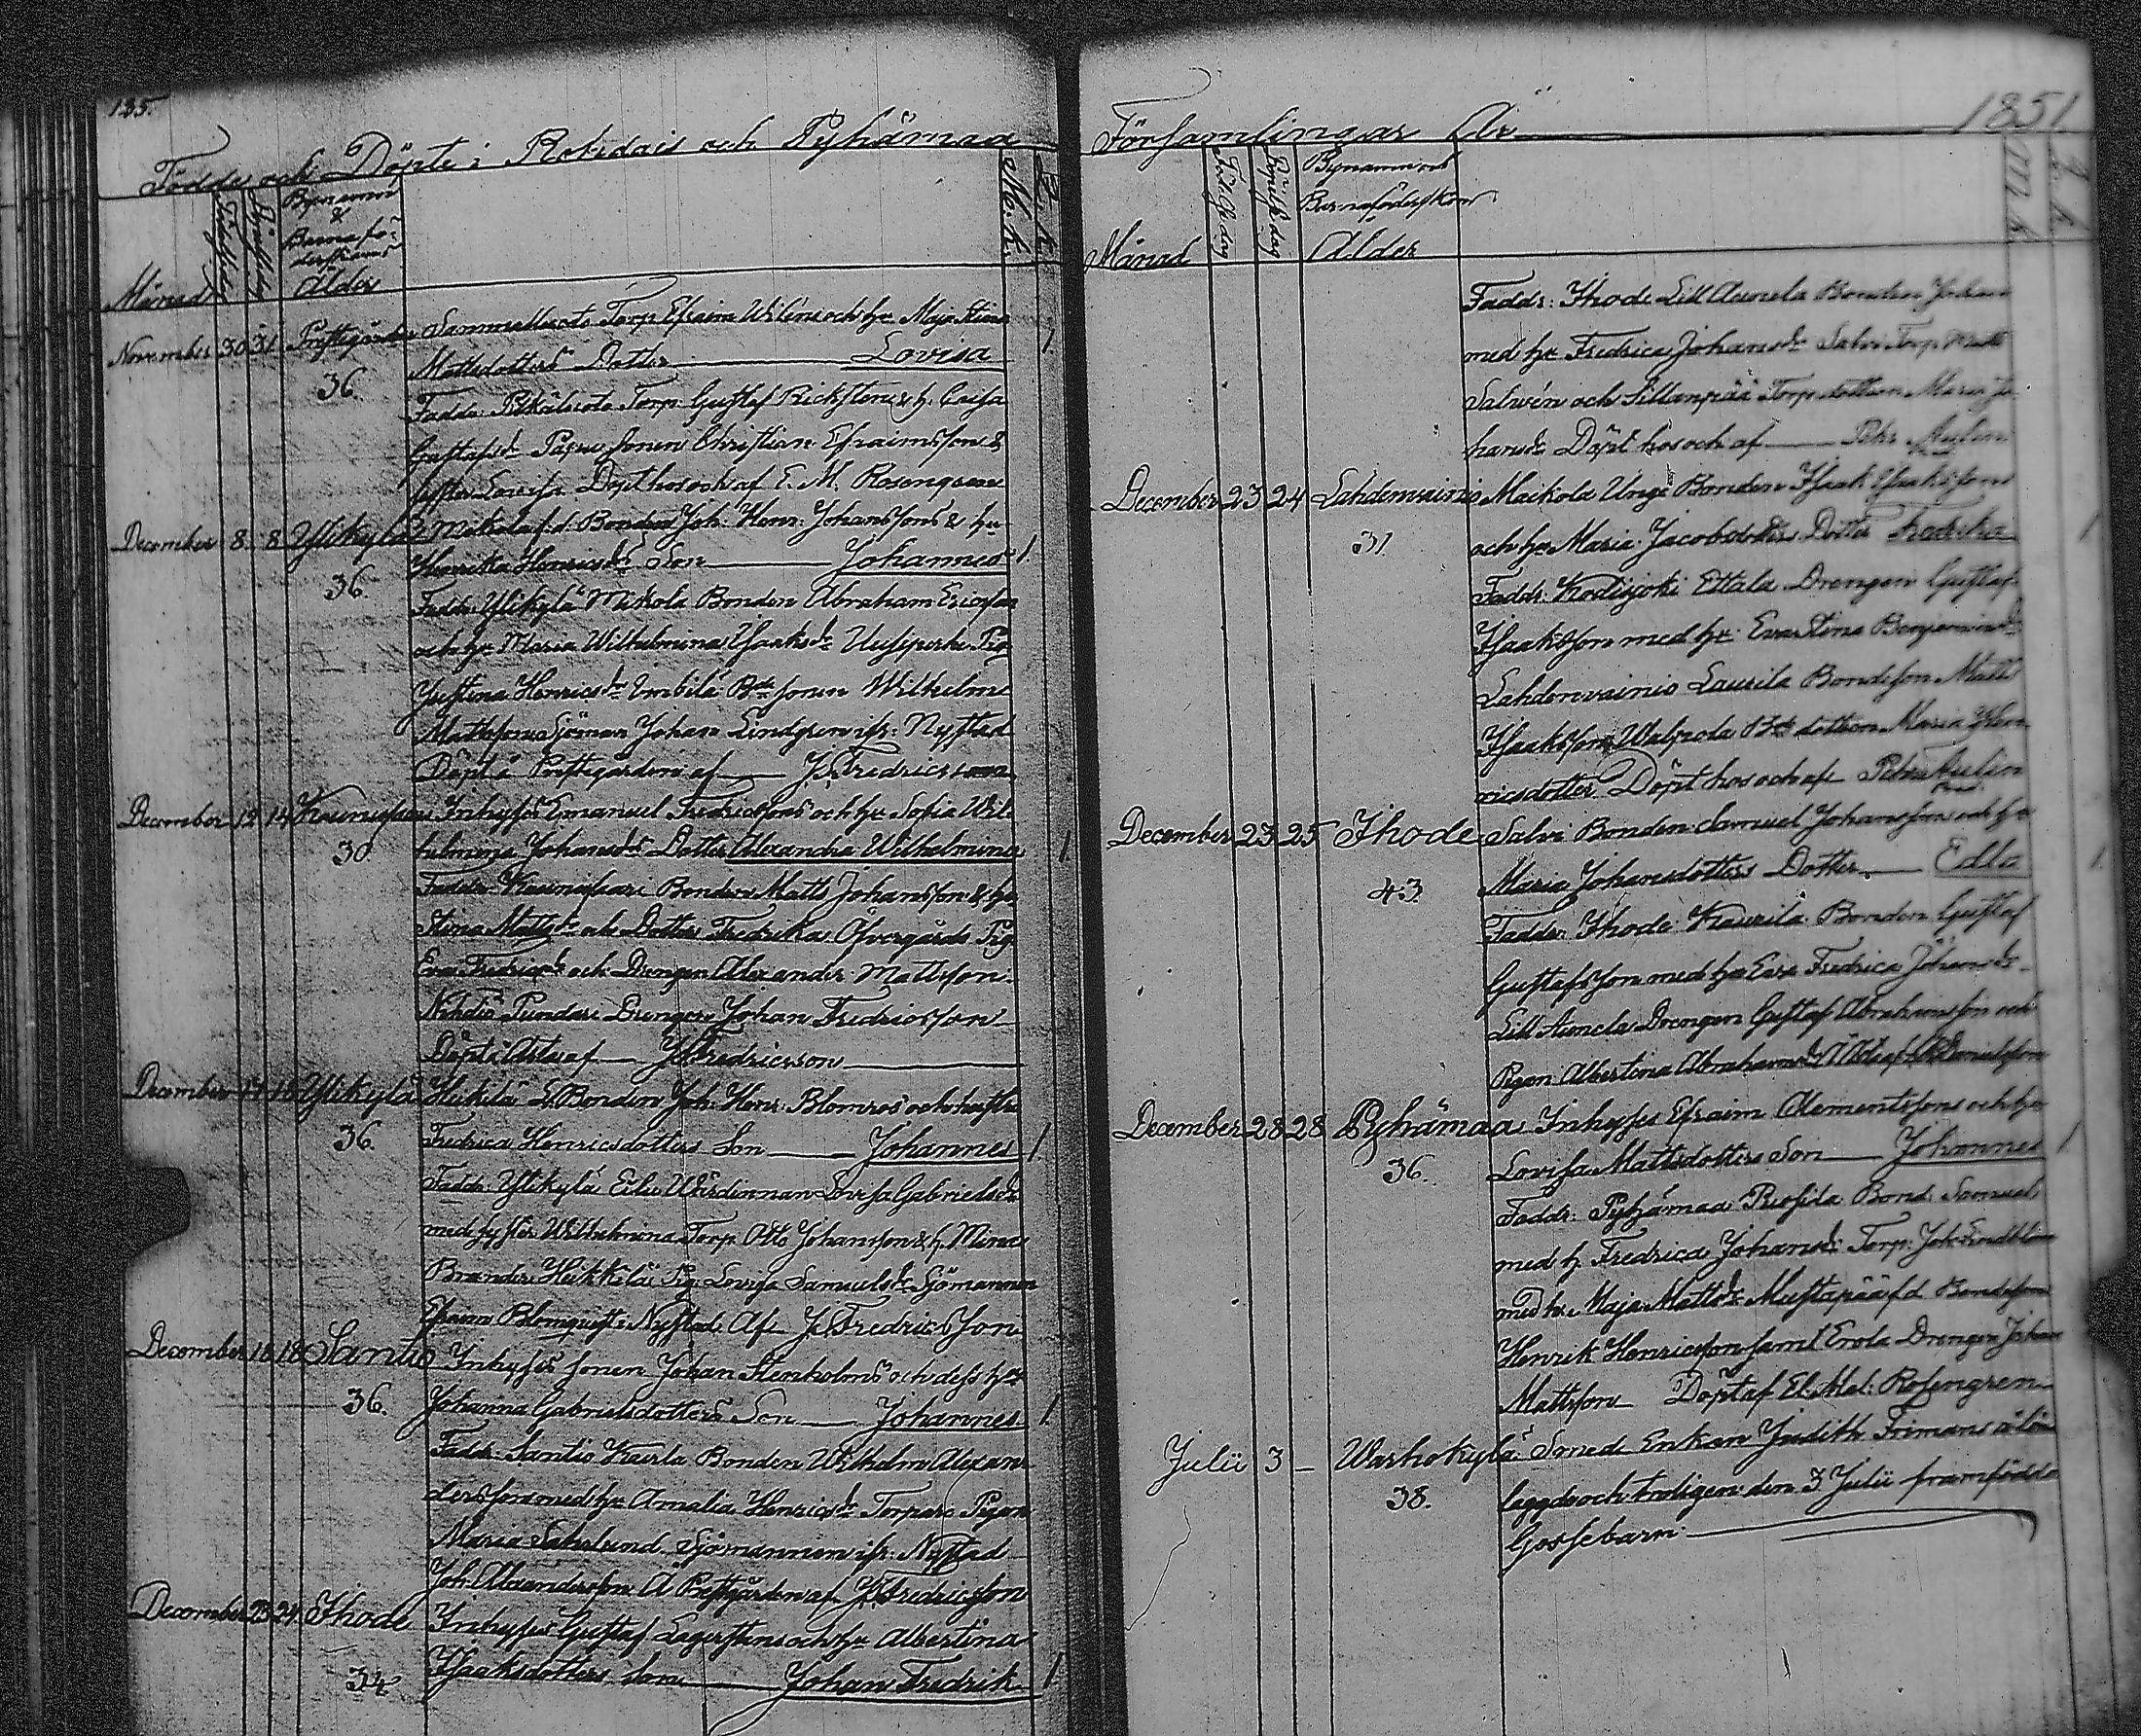 135.
Födde och Döpte i Rohdais och Pyhämaa
Månad
Födelsedag
Bynamn
&
Barnafö-
derskans
Ålder
M.k.
Q.k.
November 30 31 Prestegården Sammalluoto Torp. Efraim Wiléns och h:u Maja Stina
Mattsdotters Dotter Lovisa 1
36.
Faddr: Torp: Gustaf Rickstén & h. Caisa
Gustafsd:r sonen Christian Efraimsson &
syster Lovisa Döpt hos och af E. M. Rosengren
December 8 8 Ylikylä Mikola f.d. Bonden Joh: Henr: Johanssons & hu
Henrika Henricsd:rs Son Johannes 1.
36.
Faddr: Ylikylä Mikola Bonden Abraham Ericsson
och h:u Maria Wilhelmina Isaksd:r Pig
Justina Henricsd:r Bde sonen Wilhelm
Mattsson Sjöman Johan Lindgren ifr: Nystad
Döpt i Prestegården af J. Fredricsson
December 12 14 Inhyses Emanuel Fredricssons och h:u Sofia Wil-
helmina Johansd:rs Dotter Alexandra Wilhelmina 1
30
Faddr: Bonden Matts Johansson & hu
Stina Mattsd:r och Dotter Fredrika Öfvergårds Pig
Eva Fredricsd:r och Drengen Alexander Mattsson
Nihdiö Pundars Drengen Johan Fredricsson
Döpt af J. Fredricsson
December 17 18 Ylikylä Heikilä Bonden Joh: Henr: Blomros och hustru
Fredrica Henricsdotters Son Johannes 1
36.
Faddr: Ylikylä Eilu Wärdinnan Lovisa Gabrielsd:r
med syster Wilhelmina Torp. Otto Johansson & h. Mina
Brander Heikkilä Pig. Lovisa Samuelsd:r Sjömannen
Efraim Blomquist Nystad. Af J. Fredricsson
December 18 18 Santio Inhyses sonen Johan Stenholms och dess h:u
Johanna Gabrielsdotters Son Johannes 1
36.
Faddr: Santio Kaurla Bonden Wilhelm Alexan-
dersson med h:u Amalia Henricsd:r Torpars Pigan
Maria Sahlund Sjömannen ifr: Nystad
Joh. Alexandersson Å Prestgården af J. Fredricsson
December 23 24 Ihode Inhyses Gustaf Lagerstens och h:u Albertina
Isaaksdotters Son Johan Fredrik 1
34
Församlingar År 1851
Månad
Födelsedag
Döpelsedag
Bynamn och
Barnaföderskans
Ålder
M.k.
Q.k.
Faddr: Ihode Lill Aumela Bonden Johan
med h:u Fredrica Johansd:r Salvi Torp. Matt
Salwén och Sillanpää Torp. dottern Maria Jo-
hansd:r Döpt hos och af Petr. Aulin
December 23 24 Lahdenvainio Maikola Unge Bonden Isaak Isakssons
och h:u Maria Jacobsdotters Dotter Fredrika 1
31.
Faddr: Kodisjoki Ettala Drengen Gustaf
Isaaksson med h:u Eva Stina Benjaminsd:r
Lahdenvainio Laurila Bondeson Matts
Isaaksson Walpola Bde dottern Maria Hen-
ricsdotter Döpt hos och af Petr. Aulin
December 23 25 Ihode Salvi Bonden Samuel Johanssons och h:u
Maria Johansdotters Dotter Edla 1.
43.
Faddr: Ihode Kaurila Bonden Gustaf
Gustafsson med h:u Eva Fredrica Johansd:r
Lill Aumela Drengen Gustaf Abrahamsson och
Pigan Albertina Abrahamsd:r
December 28 28 Pyhämaa Inhyses Efraim Clementssons och h:u
Lovisa Mattsdotters Son Johannes 1
36.
Faddr: Pyhämaa Bond. Samuel
med h. Fredrica Johansd:r Torp: Joh. Lindblom
med h:u Maja Mattsd:r Mustapää f.d. Bondeson
Henrik Henricsson samt Erola Drengen Johan
Mattsson Döpt af El: Mel: Rosengren
Julii 3 — Warhokylä Smed Enkan Judith Frimans å lön
lagde och troligen den 3 Julii framfödde
Gossebarn.
38.